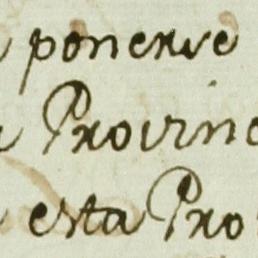 ponerse
Provinc
esta Pro